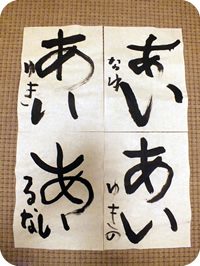 あい
なゆ
あい
ゆき
あい
ゆきの
あい
るな